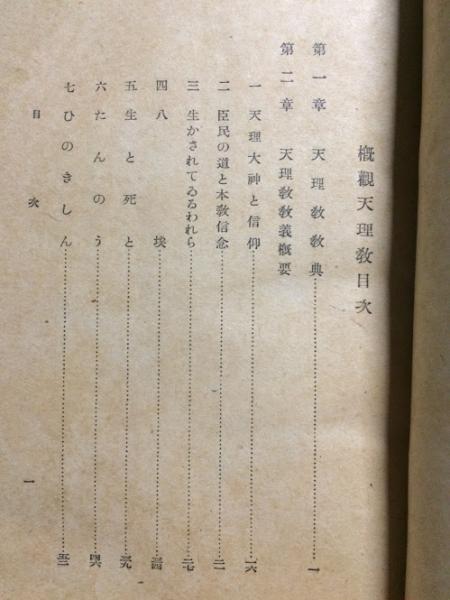 概觀天理教目次
第一章 天理教教典……一
第二章 天理教教義概要
一 天理大神と信仰……一六
二 臣民の道と本教信念……二一
三 生かされてゐるわれら……二七
四 八埃……三四
五 生と死と……三九
六 たんのう……四六
七 ひのきしん……五三
目次
一